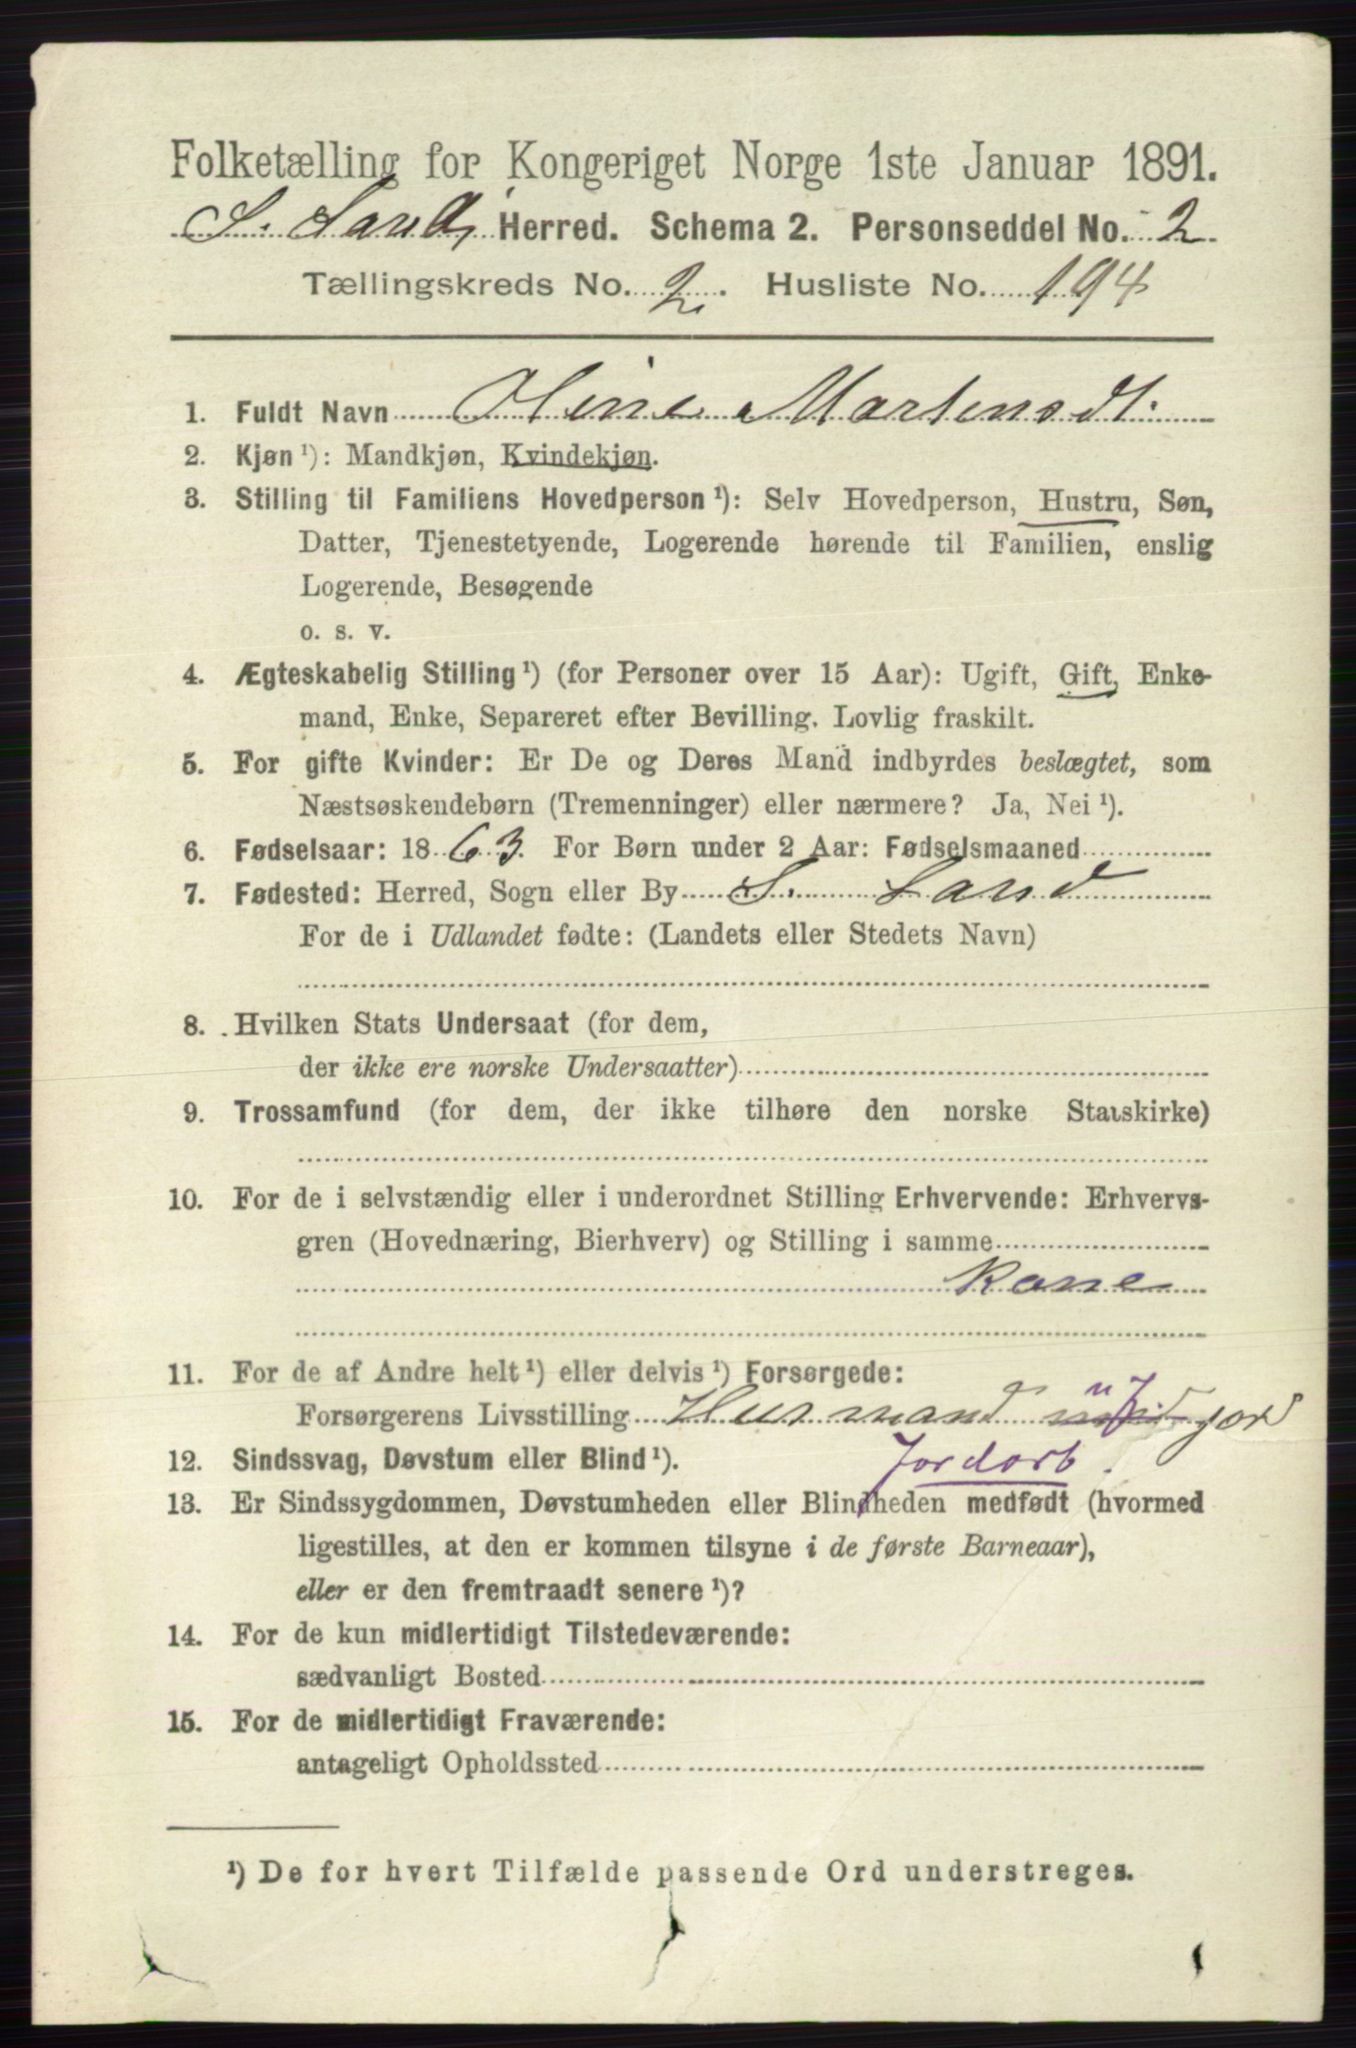 Folketælling for Kongeriget Norge 1ste Januar 1891.
S. Land, Herred. Schema 2. Personseddel No. 2.
Tællingskreds No. 2. Husliste No. 194
1. Fuldt Navn Oline Martensdt.
2. Kjøn ¹): Mandkjøn, Kvindekjøn.
3. Stilling til Familiens Hovedperson ¹): Selv Hovedperson, Hustru, Søn,
Datter, Tjenestetyende, Logerende hørende til Familien, enslig
Logerende, Besøgende
o. s. v.
4. Ægteskabelig Stilling ¹) (for Personer over 15 Aar): Ugift, Gift, Enke-
mand, Enke, Separeret efter Bevilling. Lovlig fraskilt.
5. For gifte Kvinder: Er De og Deres Mand indbyrdes beslægtet, som
Næstsøskendebørn (Tremenninger) eller nærmere? Ja, Nei ¹).
6. Fødselsaar: 1863. For Børn under 2 Aar: Fødselsmaaned
7. Fødested: Herred, Sogn eller By S. Land
For de i Udlandet fødte: (Landets eller Stedets Navn)
8. Hvilken Stats Undersaat (for dem,
der ikke ere norske Undersaatter)
9. Trossamfund (for dem, der ikke tilhøre den norske Statskirke)
10. For de i selvstændig eller i underordnet Stilling Erhvervende: Erhvervs-
gren (Hovednæring, Bierhverv) og Stilling i samme
Kone
11. For de af Andre helt ¹) eller delvis ¹) Forsørgede:
Forsørgerens Livsstilling Husmand jord
12. Sindssvag, Døvstum eller Blind ¹). Jordarb.
13. Er Sindssygdommen, Døvstumheden eller Blindheden medfødt (hvormed
ligestilles, at den er kommen tilsyne i de første Barneaar),
eller er den fremtraadt senere ¹)?
14. For de kun midlertidigt Tilstedeværende:
sædvanligt Bosted
15. For de midlertidigt Fraværende:
antageligt Opholdssted
¹) De for hvert Tilfælde passende Ord understreges.